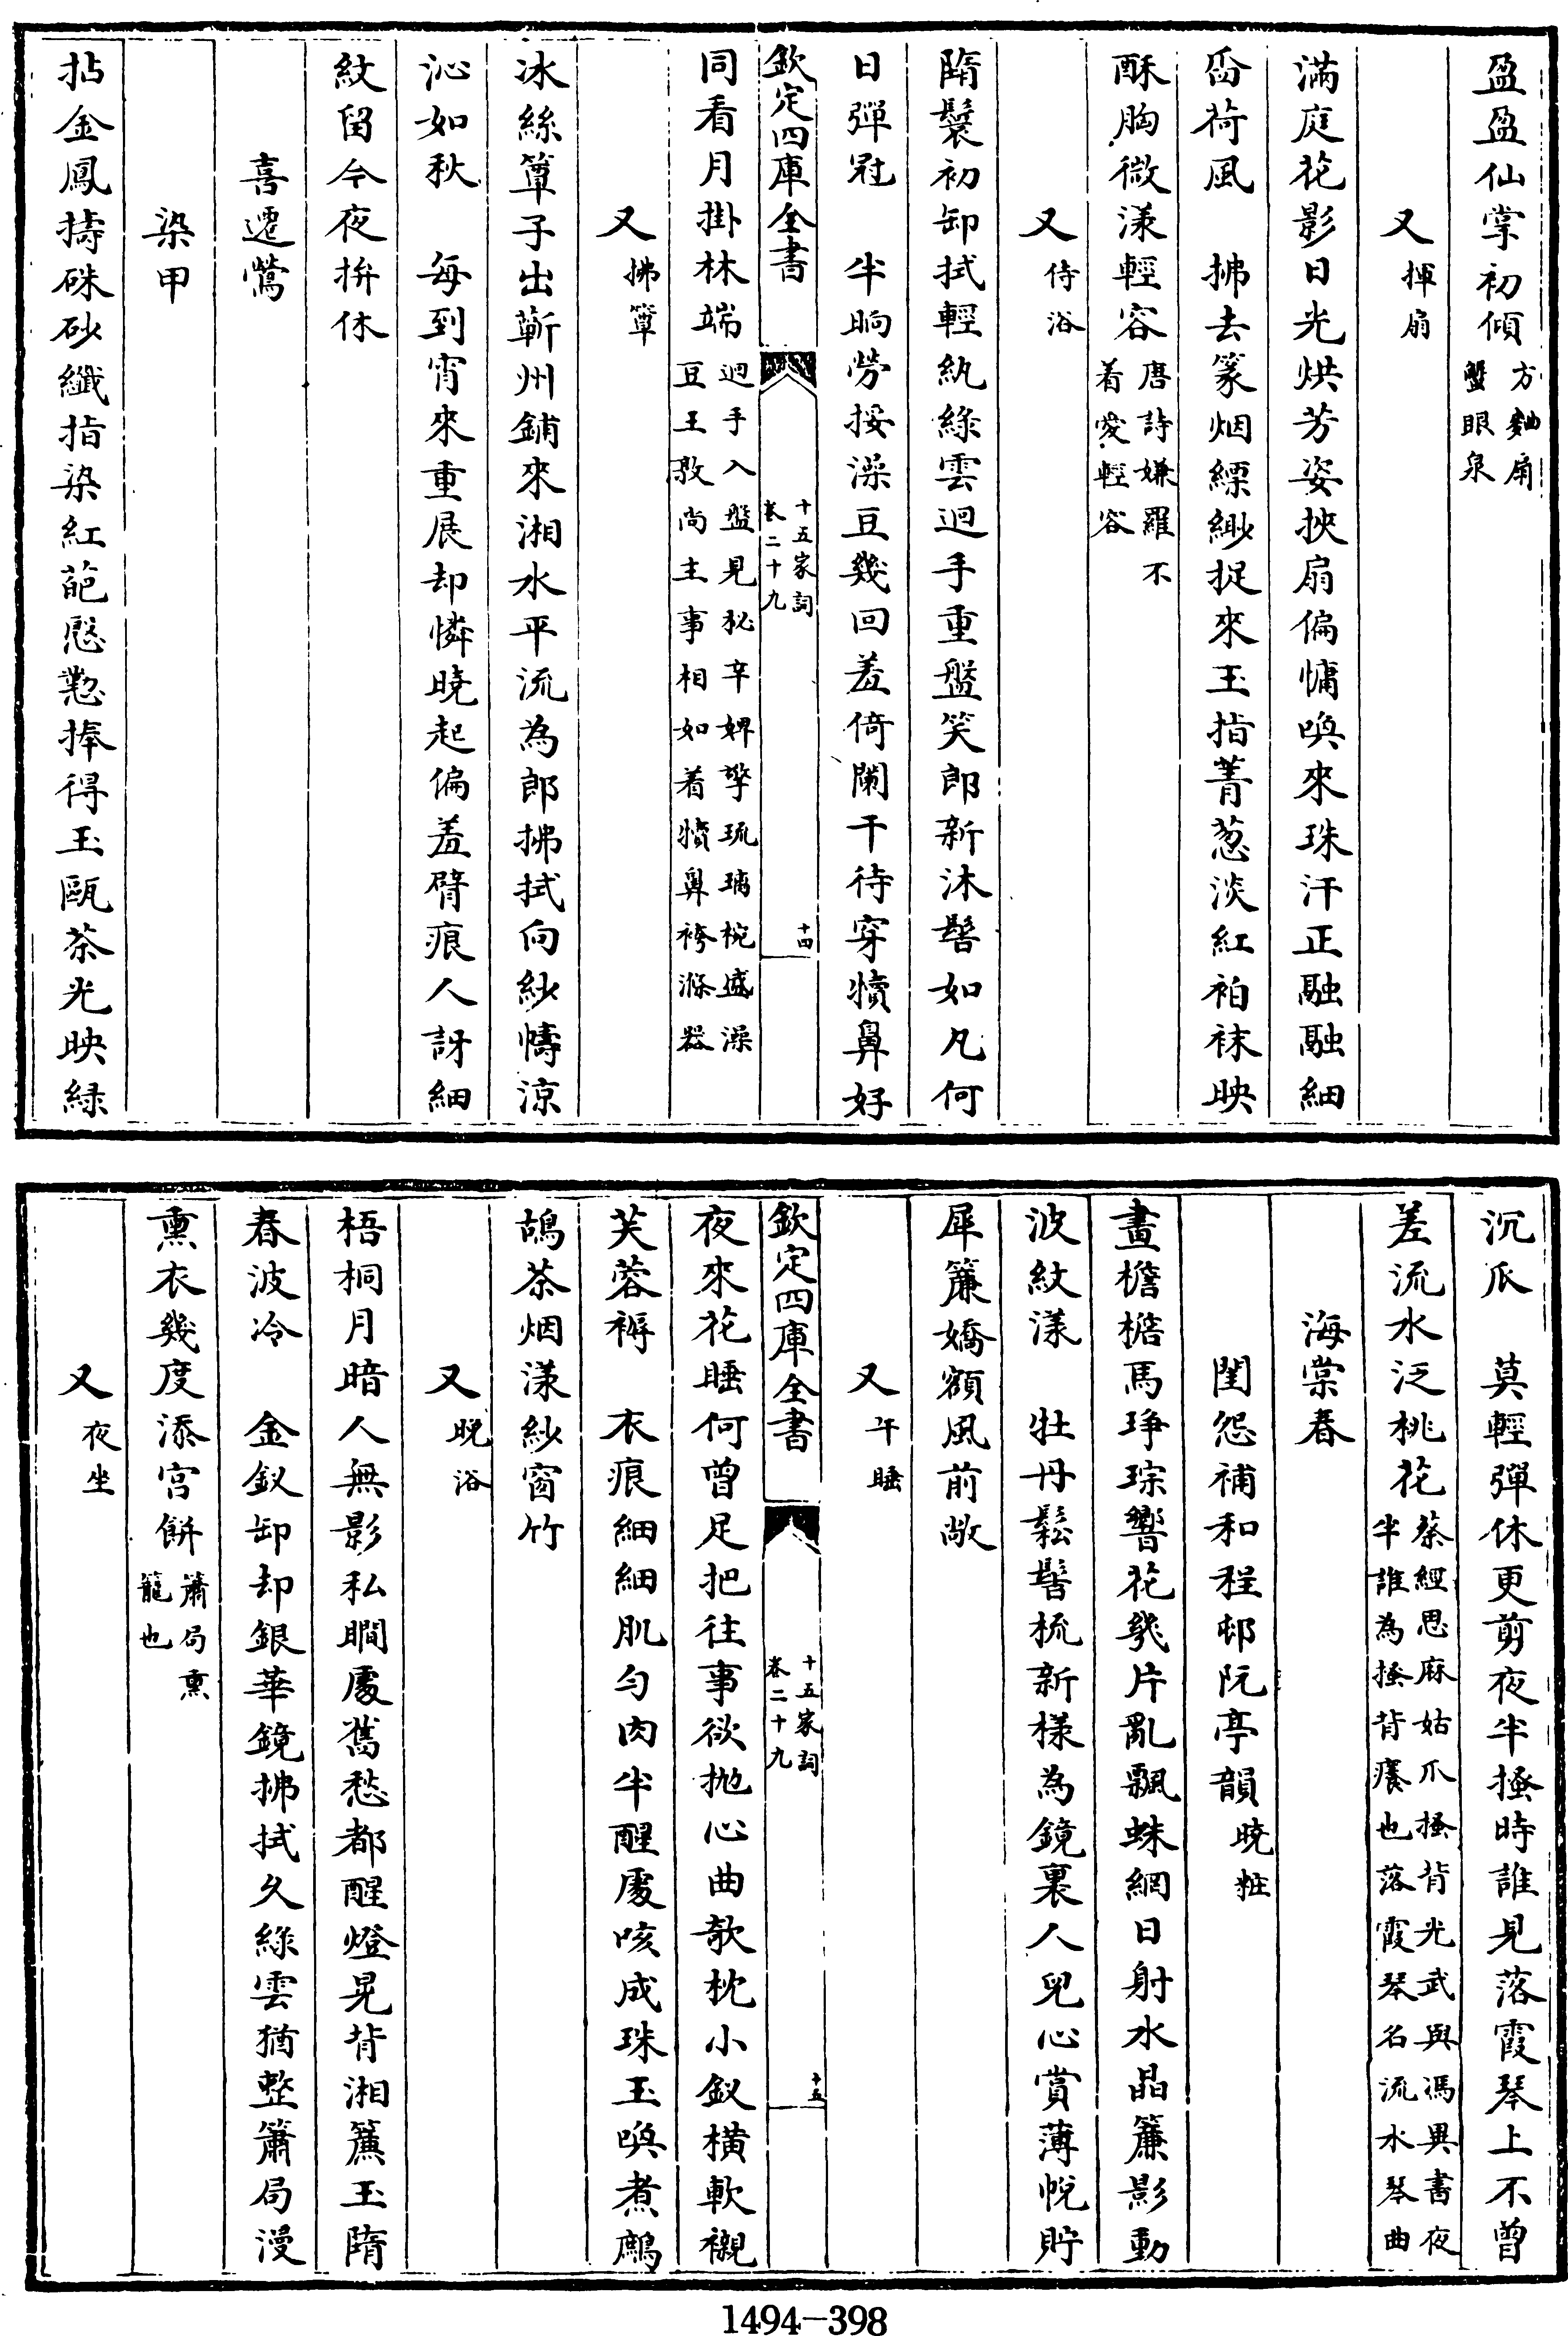 盈盈仙掌初傾方麯扇蟹眼泉
又揮扇
滿庭花影日光烘芳姿挾扇偏慵喚來珠汗正融融細
喬荷風　拂去篆烟縹緲捉來玉指菁葱淡紅袙袜映
酥胸微漾輕容唐詩嫌羅不着愛輕容
又侍浴
隋鬟初卸拭輕紈綠雲迴手重盤笑郎新沐髻如凡何
日彈冠　半晌勞挼澡豆幾回羞倚闌干待穿犢鼻好
同看月掛林端迴手入盤見秘辛婢擎琉璃椀盛澡豆王敦尚主事相如着犢鼻褌滌器
又拂簟
冰絲簟子出蘄州鋪來湘水平流為郎拂拭向紗幬涼
沁如秋　每到宵來重展却憐曉起偏羞臂痕人訝細
紋留今夜拚休
喜遷鶯
染甲
拈金鳳擣硃砂纖指染紅葩慇懃捧得玉甌茶光映緑
欽定四庫全書
十五家詞
卷二十九
十四
沉瓜　莫輕彈休更剪夜半搔時誰見落霞琴上不曾
差流水泛桃花蔡經思麻姑爪搔背光武與馮異書夜半誰為搔背癢也落霞琴名流水琴曲
海棠春
閨怨補和程邨阮亭韻曉粧
畫檐檐馬琤琮響花幾片亂飄蛛網日射水晶簾影動
波紋漾　牡丹鬆髻梳新樣為鏡裏人兒心賞薄帨貯
犀簾嬌額風前敞
又午睡
夜來花睡何曾足把往事欲抛心曲欹枕小釵橫軟襯
芙蓉褥　衣痕細細肌勻肉半醒處咳成珠玉喚煮鷓
鴣茶烟漾紗窗竹
又晚浴
梧桐月暗人無影私瞷處舊愁都醒燈晃背湘簾玉隋
春波冷　金釵卸却銀華鏡拂拭久綠雲猶整簫局漫
熏衣幾度添宮餅簫局熏籠也
又夜坐
欽定四庫全書
十五家詞
卷二十九
十五
1494-398